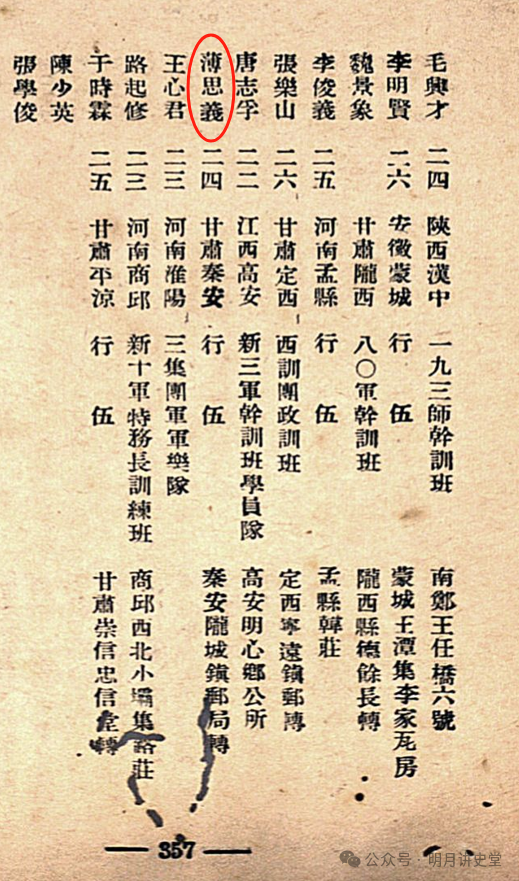 毛興才 二四 陝西漢中 一九三師幹訓班 南鄭王任橋六號
李明賢 二六 安徽蒙城 行伍 蒙城王潭集李家瓦房
魏景象 甘肅隴西 八〇軍幹訓班 隴西縣德餘長轉
李俊義 二五 河南孟縣 行伍 孟縣韓莊
張樂山 二六 甘肅定西 西訓團政訓班 定西寧遠鎮郵轉
唐志孚 二二 江西高安 新三軍幹訓班學員隊 高安明心鄉公所
薄思義 二四 甘肅秦安 行伍 秦安隴城鎮郵局轉
王心君 二三 河南淮陽 三集團軍軍樂隊
路起修 二三 河南商邱 新十軍特務長訓練班 商邱西北小壩集路莊
于時霖 二五 甘肅平涼 行伍 甘肅崇信忠信堂轉
陳少英
張學俊
357
公众号·明月讲史堂